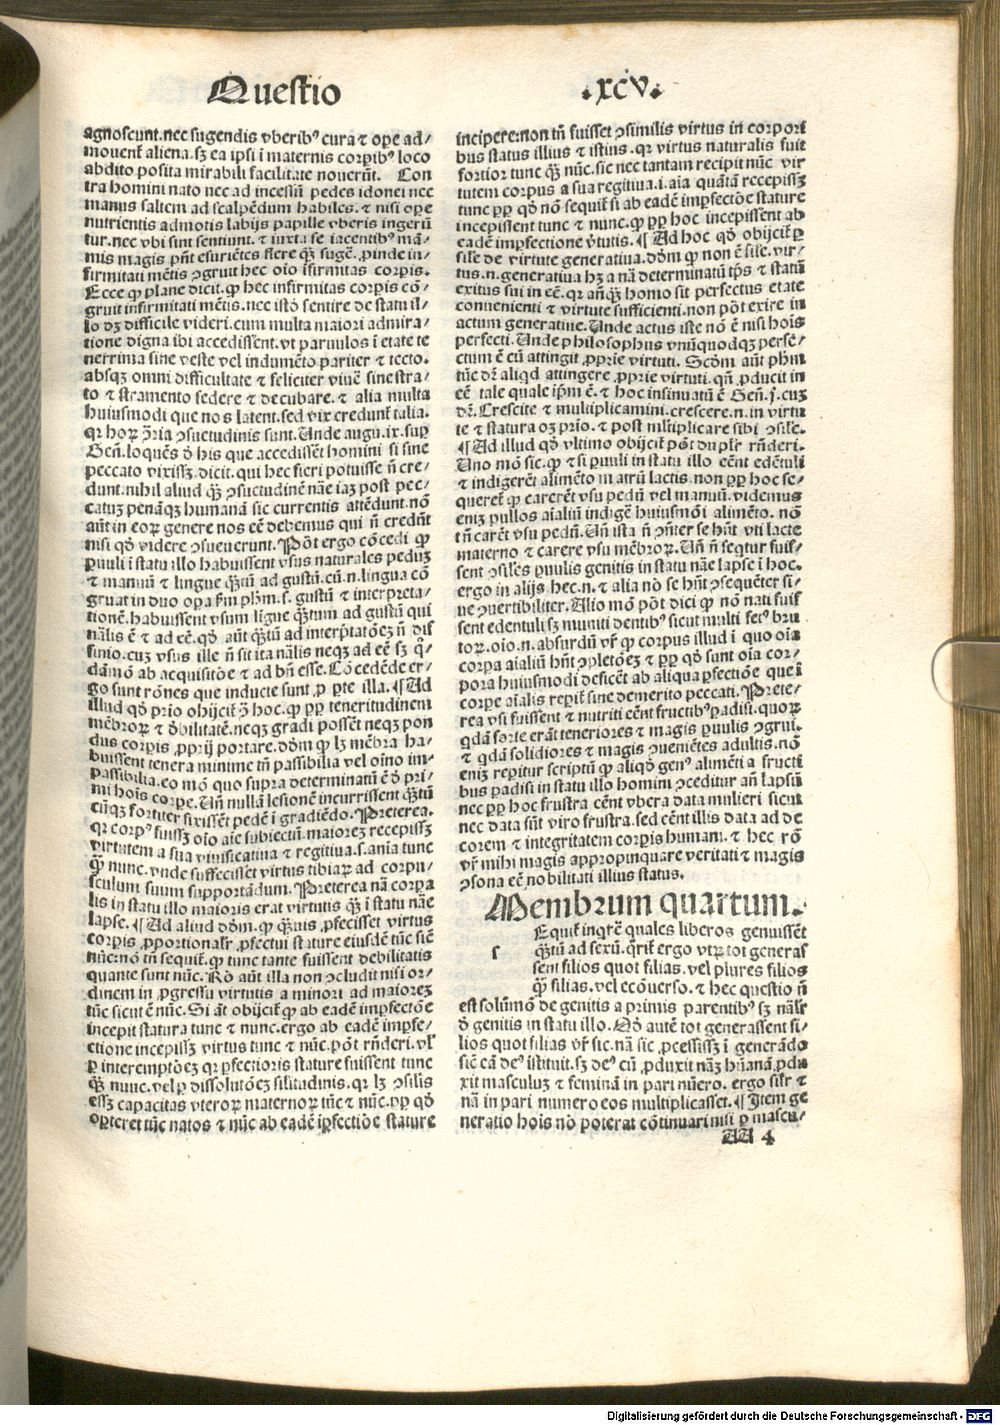 Questio
.xcv.
agnoscunt.nec sugendis vberibꝰ cura ⁊ ope ad⸗
mouent̄ aliena.sꝫ ea ipsi ī maternis corpibꝰ loco
abdito posita mirabili facilitate nouerūt. Con
tra homini nato nec ad incessū pedes idonei nec
manus saltem ad scalpēdum habiles.⁊ nisi ope
nutrientis admotis labijs papille vberis ingerū
tur.nec vbi sint sentiunt.⁊ iuxta se iacentibꝰ mā⸗
mis magis pn̄t esuriētes flere qꝫ̄ sugē.ꝓinde in⸗
firmitati mētis ꝯgruit hec oīo īfirmitas corpis.
Ecce ꝙ plane dicit.ꝙ hec infirmitas corpis cō⸗
gruit infirmitati mētis.nec istō sentire de statu il⸗
lo dꝫ difficile videri.cum multa maiori admira⸗
tione digna ibi accedissent.vt paruulos ī etate te
nerrima sine veste vel indumēto pariter ⁊ tecto.
absqꝫ omni difficultate ⁊ feliciter viuē sine stra⸗
to ⁊ stramento sedere ⁊ decubare.⁊ alia multa
huiusmodi que nos latent.sed vix credunt̄ talia.
qꝛ hoꝝ ꝯ̄ria ꝯsuetudinis sunt.Unde augꝰ.ix.sup
Geñ.loquēs ō his que accedissēt homini si sine
peccato vixissꝫ.dicit.qui hec fieri potuisse n̄ cre⸗
dunt.nihil aliud qꝫ̄ ꝯsuetudinē nāe iaꝫ post pec⸗
catuꝫ penāqꝫ humanā sic currentis attēdunt.nō
aūt in eoꝝ genere nos eē debemus qui n̄ credūt
nisi qō videre ꝯsueuerunt.Pōt ergo cōcedi ꝙ
ꝑuuli ī statu illo habuissent vsus naturales peduꝫ
⁊ manuū ⁊ lingue qꝫ̄tū ad gustū.cū.n.lingua cō
gruat in duo opa ẜm phm̄.s.gustū ⁊ interpreta⸗
tionē.habuissent vsum līgue qꝫ̄tum ad gustū qui
nālis ē ⁊ ad eē.qō aūt qꝫ̄tū ad interp̄tatōeꝫ n̄ dif
finio.cuꝫ vsus ille n̄ sit ita nālis neqꝫ ad eē sꝫ q̊⸗
dāmō ab acquisitōe ⁊ ad bn̄ esse.Cōcedēde er⸗
go sunt rōnes que inducte sunt ꝓ ꝑte illa.¶Ad
illud qō prīo obijcit̄ ꝯ̄ hoc.ꝙ ꝑp teneritudinem
mēbroꝝ ⁊ ō̄bilitatē.neqꝫ gradi possēt neqꝫ pon
dus corpis ꝓprij portare.dōm ꝙ lꝫ mēbra ha⸗
buissent tenera minime tn̄ passibilia vel oīno im⸗
passibilia.eo mō quo supra determinatū ē ō pri⸗
mi hoīs corpe.Uñ nullā lesionē incurrissent qꝫ̄tū
cūqꝫ fortiter fixissēt pedē ī gradiēdo.Preterea.
qꝛ corpꝰ fuissꝫ oīo aīe subiectū.maioreꝫ recepissꝫ
virtutem a sua viuificatiua ⁊ regitiua.s.anīa tunc
qꝫ̄ nunc.vnde suffecisset virtus tibiaꝝ ad corpu⸗
sculum suum supportādum.Preterea nā corpa
lis in statu illo maioris erat virtutis qꝫ̄ ī statu nāe
lapse.¶Ad aliud dōm.ꝙ qꝫ̄uis ꝓfecisset virtus
corpis ꝓportionalr̄ ꝓfectui stature eiusdē tūc sic̄
nūc.nō tn̄ sequit̄.ꝙ tunc tante fuissent debilitatis
quante sunt nūc.Rō aūt illa non ꝯcludit nisi or⸗
dinem in ꝓgressu virtutis a minori ad maioreꝫ
tūc sicut ē nūc.Si āt obijcit̄ ꝙ ab eadē imꝑfectōe
incepit statura tunc ⁊ nunc.ergo ab eadē impfe⸗
ctione incepissꝫ virtus tunc ⁊ nūc.pōt rn̄deri.vl̓
ꝑ interemptōeꝫ qꝛ ꝑfectioris stature fuissent tunc
qꝫ̄ nunc.vel ꝑ dissolutōeꝫ silitudinis.qꝛ lꝫ ꝯsilis
essꝫ capacitas vteroꝝ maternoꝝ tūc ⁊ nūc.ꝑp qō
oporteret tūc natos ⁊ nūc ab eadē īꝑfectiōe stature
incipere:non tn̄ fuisset ꝯsimilis virtus in corpori
bus status illius ⁊ istius.qꝛ virtus naturalis fuit
fortior tunc qꝫ̄ nūc.sic nec tantam recipit nūc vir
tutem corpus a sua regitiua.i.aīa quātā recepissꝫ
tunc ꝑp qō nō sequit̄ si ab eadē imꝑfectiōe stature
incepissent tunc ⁊ nunc.ꝙ ꝑp hoc incepissent ab
eadē imꝑfectione v̄tutis.¶Ad hoc qō obijcit̄ ꝑ
sil̓e de virtute generatiua.dōm ꝙ non ē sil̓e.vir⸗
tus.n.generatiua hꝫ a nā determinatū tp̄s ⁊ statū
exitus sui in eē.qꝛ añqꝫ̄ homo sit perfectus etate
conuenienti ⁊ virtute sufficienti.non pōt exire in
actum generatiue.Unde actus iste nō ē nisi hoīs
perfecti.Unde philosophus vnūquodqꝫ perfe⸗
ctum ē cū attingit ꝓprie virtuti. Scdm̄ aūt phm̄
tūc dr̄ aliqd attingere ꝓprie virtuti.qn̄ ꝓducit in
eē tale quale ip̄m ē.⁊ hoc insinuatū ē Geñ.j.cuꝫ
dr̄.Crescite ⁊ multiplicamini.crescere.n.in virtu
te ⁊ statura oꝫ prīo.⁊ post mltiplicare sibi ꝯsile.
¶Ad illud qō vltimo obijcit̄ pōt dupl̓r rn̄deri.
Uno mō sic.ꝙ ⁊ si ꝑuuli in statu illo eēnt edētuli
⁊ indigerēt alimēto matrū lactis.non ꝑp hoc se⸗
queret̄ ꝙ carerēt vsu pedū vel manuū.videmus
enīꝫ pullos aīaliū indigē huiusmōi alimēto. nō
tn̄ carēt vsu pedū.Uñ ista n̄ ꝯn̄ter se hn̄t vti lacte
materno ⁊ carere vsu mēbroꝝ.Uñ n̄ seqtur fuis⸗
sent ꝯsiles ꝑuulis genitis in statu nāe lapse ī hoc.
ergo in alijs hec.n.⁊ alia nō se hn̄t ꝯsequēter si⸗
ue ꝯuertibiliter.Alio mō pōt dici ꝙ nō nati fuis
sent edentuli sꝫ muniti dentibꝰ sicut multi fetꝰ bru
toꝝ.oīo.n.absurdū vr̄ ꝙ corpus illud ī quo oīa
corpa aīaliū hn̄t ꝯpletōeꝫ ⁊ ꝑp qō sunt oīa cor⸗
pora huiusmodi deficēt ab aliqua ꝑfectiōe que ī
corpe aīalis reperit̄ sine demerito peccati.Prete⸗
rea vsi fuissent ⁊ nutriti eēnt fructibꝰ ꝑadisi.quoꝝ
qdā forte erāt teneriores ⁊ magis ꝑuulis ꝯgrui.
⁊ qdā solidiores ⁊ magis ꝯueniētes adultis.nō
enīꝫ reperitur scriptū ꝙ aliqō genꝰ alimēti a fructi
bus ꝑadisi in statu illo homini ꝯceditur añ lapsū
nec ꝑp hoc frustra eēnt vbera data mulieri sicut
nec data sūt viro frustra.sed eēnt illis data ad de
corem ⁊ integritatem corpis humani.⁊ hec rō
vr̄ mihi magis appropinquare veritati ⁊ magis
ꝯsona eē nobilitati illius status.
Membrum quartum.
s
Equit̄ inqrē quales liberos genuissēt
qꝫ̄tū ad sexū.qrit̄ ergo vtꝝ tot generas
sent filios quot filias.vel plures filios
qꝫ̄ filias.vel ecōuerso.⁊ hec questio n̄
est solūmō de genitis a primis parentibꝰ sꝫ nālr̄
ō genitis in statu illo. Qō autē tot generassent fi⸗
lios quot filias vr̄ sic.nā sic ꝓcessissꝫ ī generādo
sic̄ eā deꝰ īstituit.sꝫ deꝰ cū ꝓduxit nāꝫ hūanā ꝓdu
xit masculuꝫ ⁊ feminā in pari nūero. ergo silr̄ ⁊
nā in pari numero eos multiplicasset.¶Item ge
neratio hoīs nō poterat cōtinuari nisi ꝑ mascu⸗
AA 4
Digitalisierung gefördert durch die Deutsche Forschungsgemeinschaft - DFG